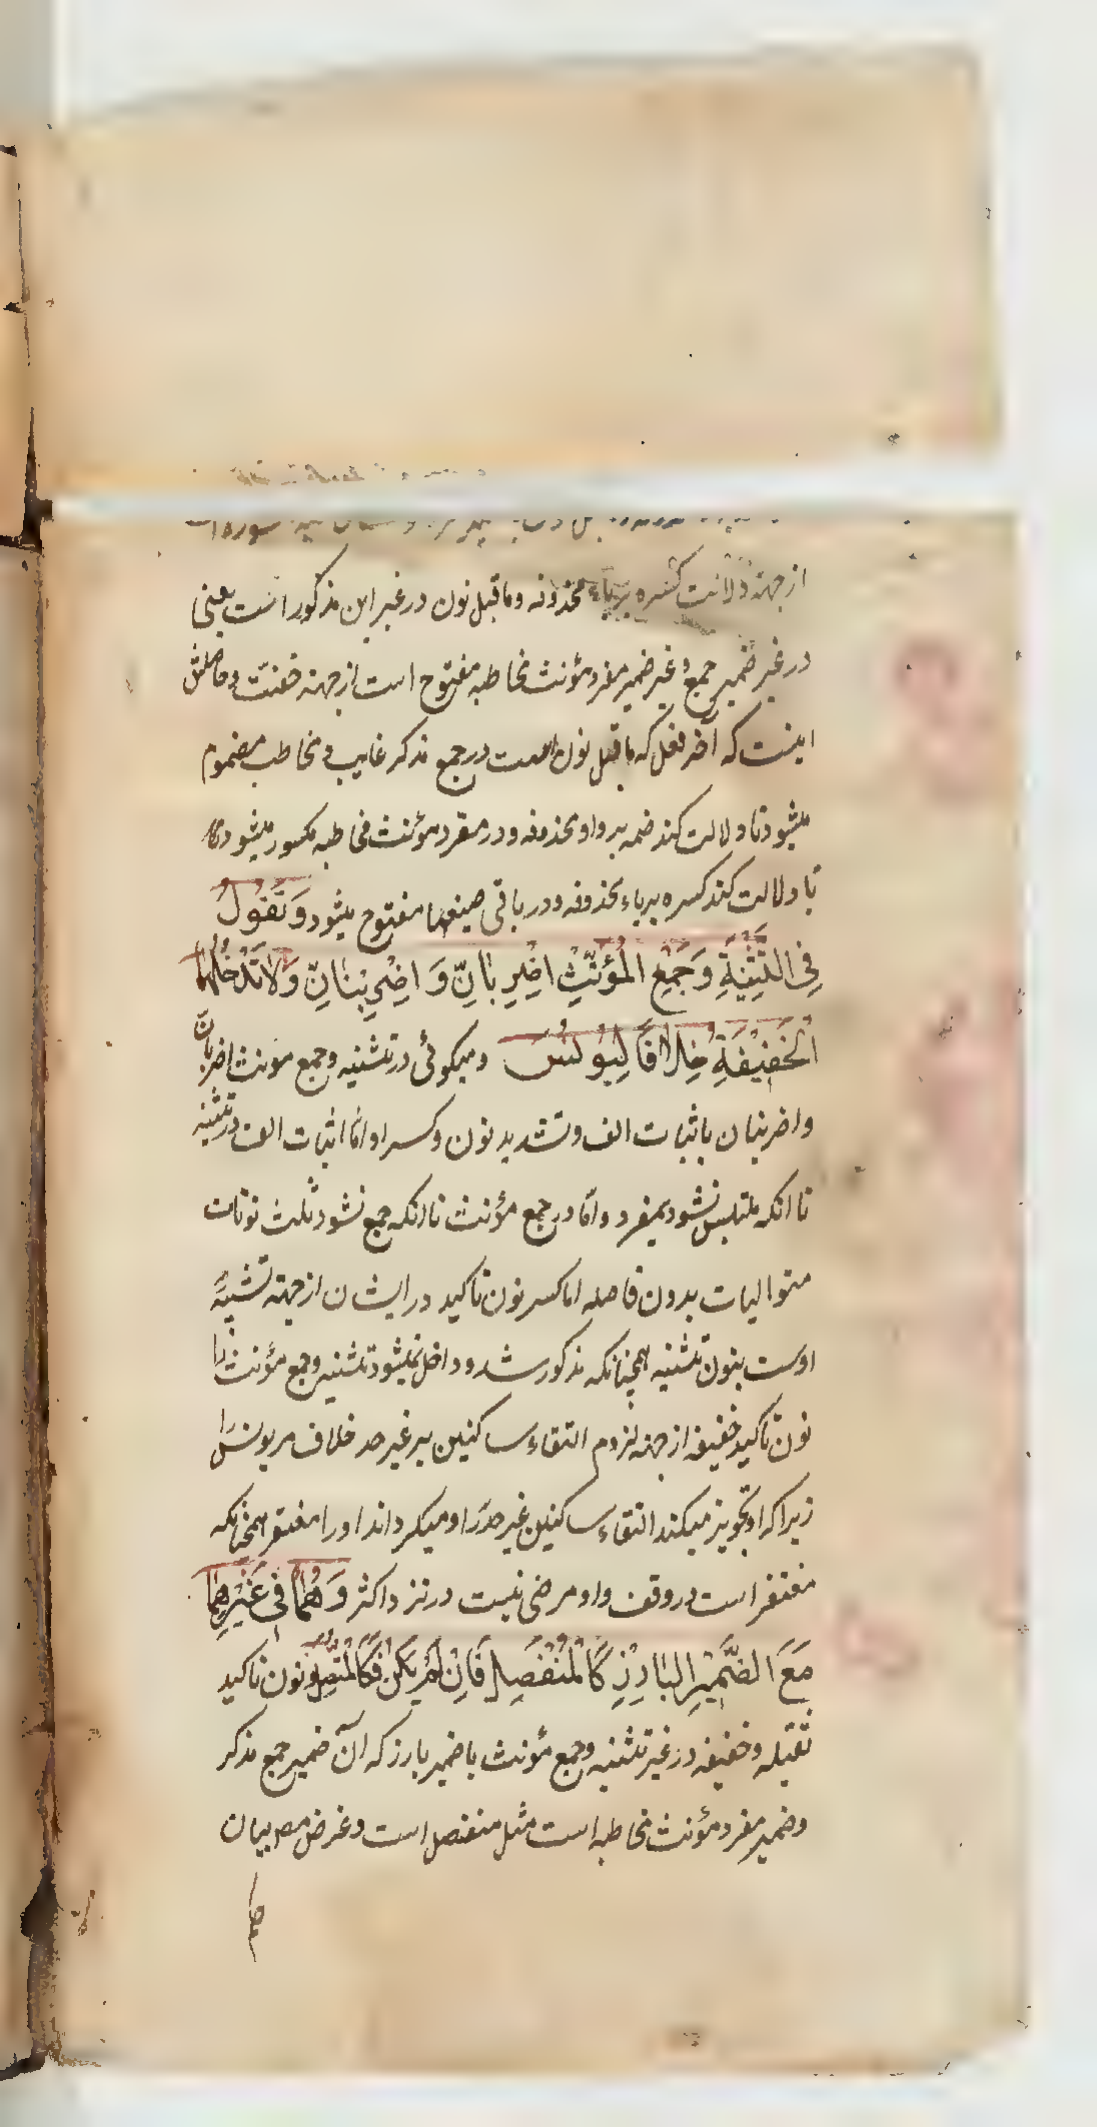 از جهة دلالت کسره بر یاء محذوفه و ماقبل نون در غیر این مذکور است یعنی
در غیر ضمیر جمع و غیر ضمیر مفرد مؤنث مخاطبه مفتوح است از جهة خفت و حاصلش
اینست که آخر فعل که ماقبل نون است در جمع مذکر غایب و مخاطب مضموم
میشود تا دلالت کند ضمه بر واو محذوفه و در مفرد مؤنث مخاطبه مکسور میشود
تا دلالت کند کسره بر یاء محذوفه و در باقی صیغها مفتوح میشود وَتَقُولُ
فِی التَّثْنِیَةِ وَجَمْعِ الْمُؤَنَّثِ اضْرِبَانِّ وَاضْرِبْنَانِّ وَلَا تَدْخُلُهُمَا
الْخَفِیْفَةِ خِلَافًا لِیُونُسَ و میگوئی در تثنیه و جمع مؤنث اضربانّ
و اضربنان باثبات الف و تشدید نون و کسر او اما اثبات الف در تثنیه
تا انکه ملتبس نشود بمفرد و امّا در جمع مؤنث تا انکه جمع نشود ثلث نونات
متوالیات بدون فاصله اما کسر نون تاکید در ایشان از جهة تشبیه
اوست بنون تثنیه همچنانکه مذکور شد و داخل نمیشود تثنیه و جمع مؤنث را
نون تاکید خفیفه از جهة لزوم التقاء ساکنین بر غیر حد خلاف مر یونس را
زیرا که او تجویز میکند التقاء ساکنین غیر حد را و میکرداند او را مغتفر همچنانکه
مغتفر است در وقف و او مرضی نیست در نزد اکثر وَهُمَا فِی غَیْرِهِمَا
مَعَ الضَّمِیْرِ الْبَارِزِ کَالْمُنْفَصِلِ فَاِنْ لَمْ یَکُنْ فَکَالْمُتَّصِلِ و نون تاکید
ثقیله و خفیفه در غیر تثنیه و جمع مؤنث با ضمیر بارز که آن ضمیر جمع مذکر
و ضمیر مفرد مؤنث مخاطبه است مثل منفصل است و غرض مص بیان